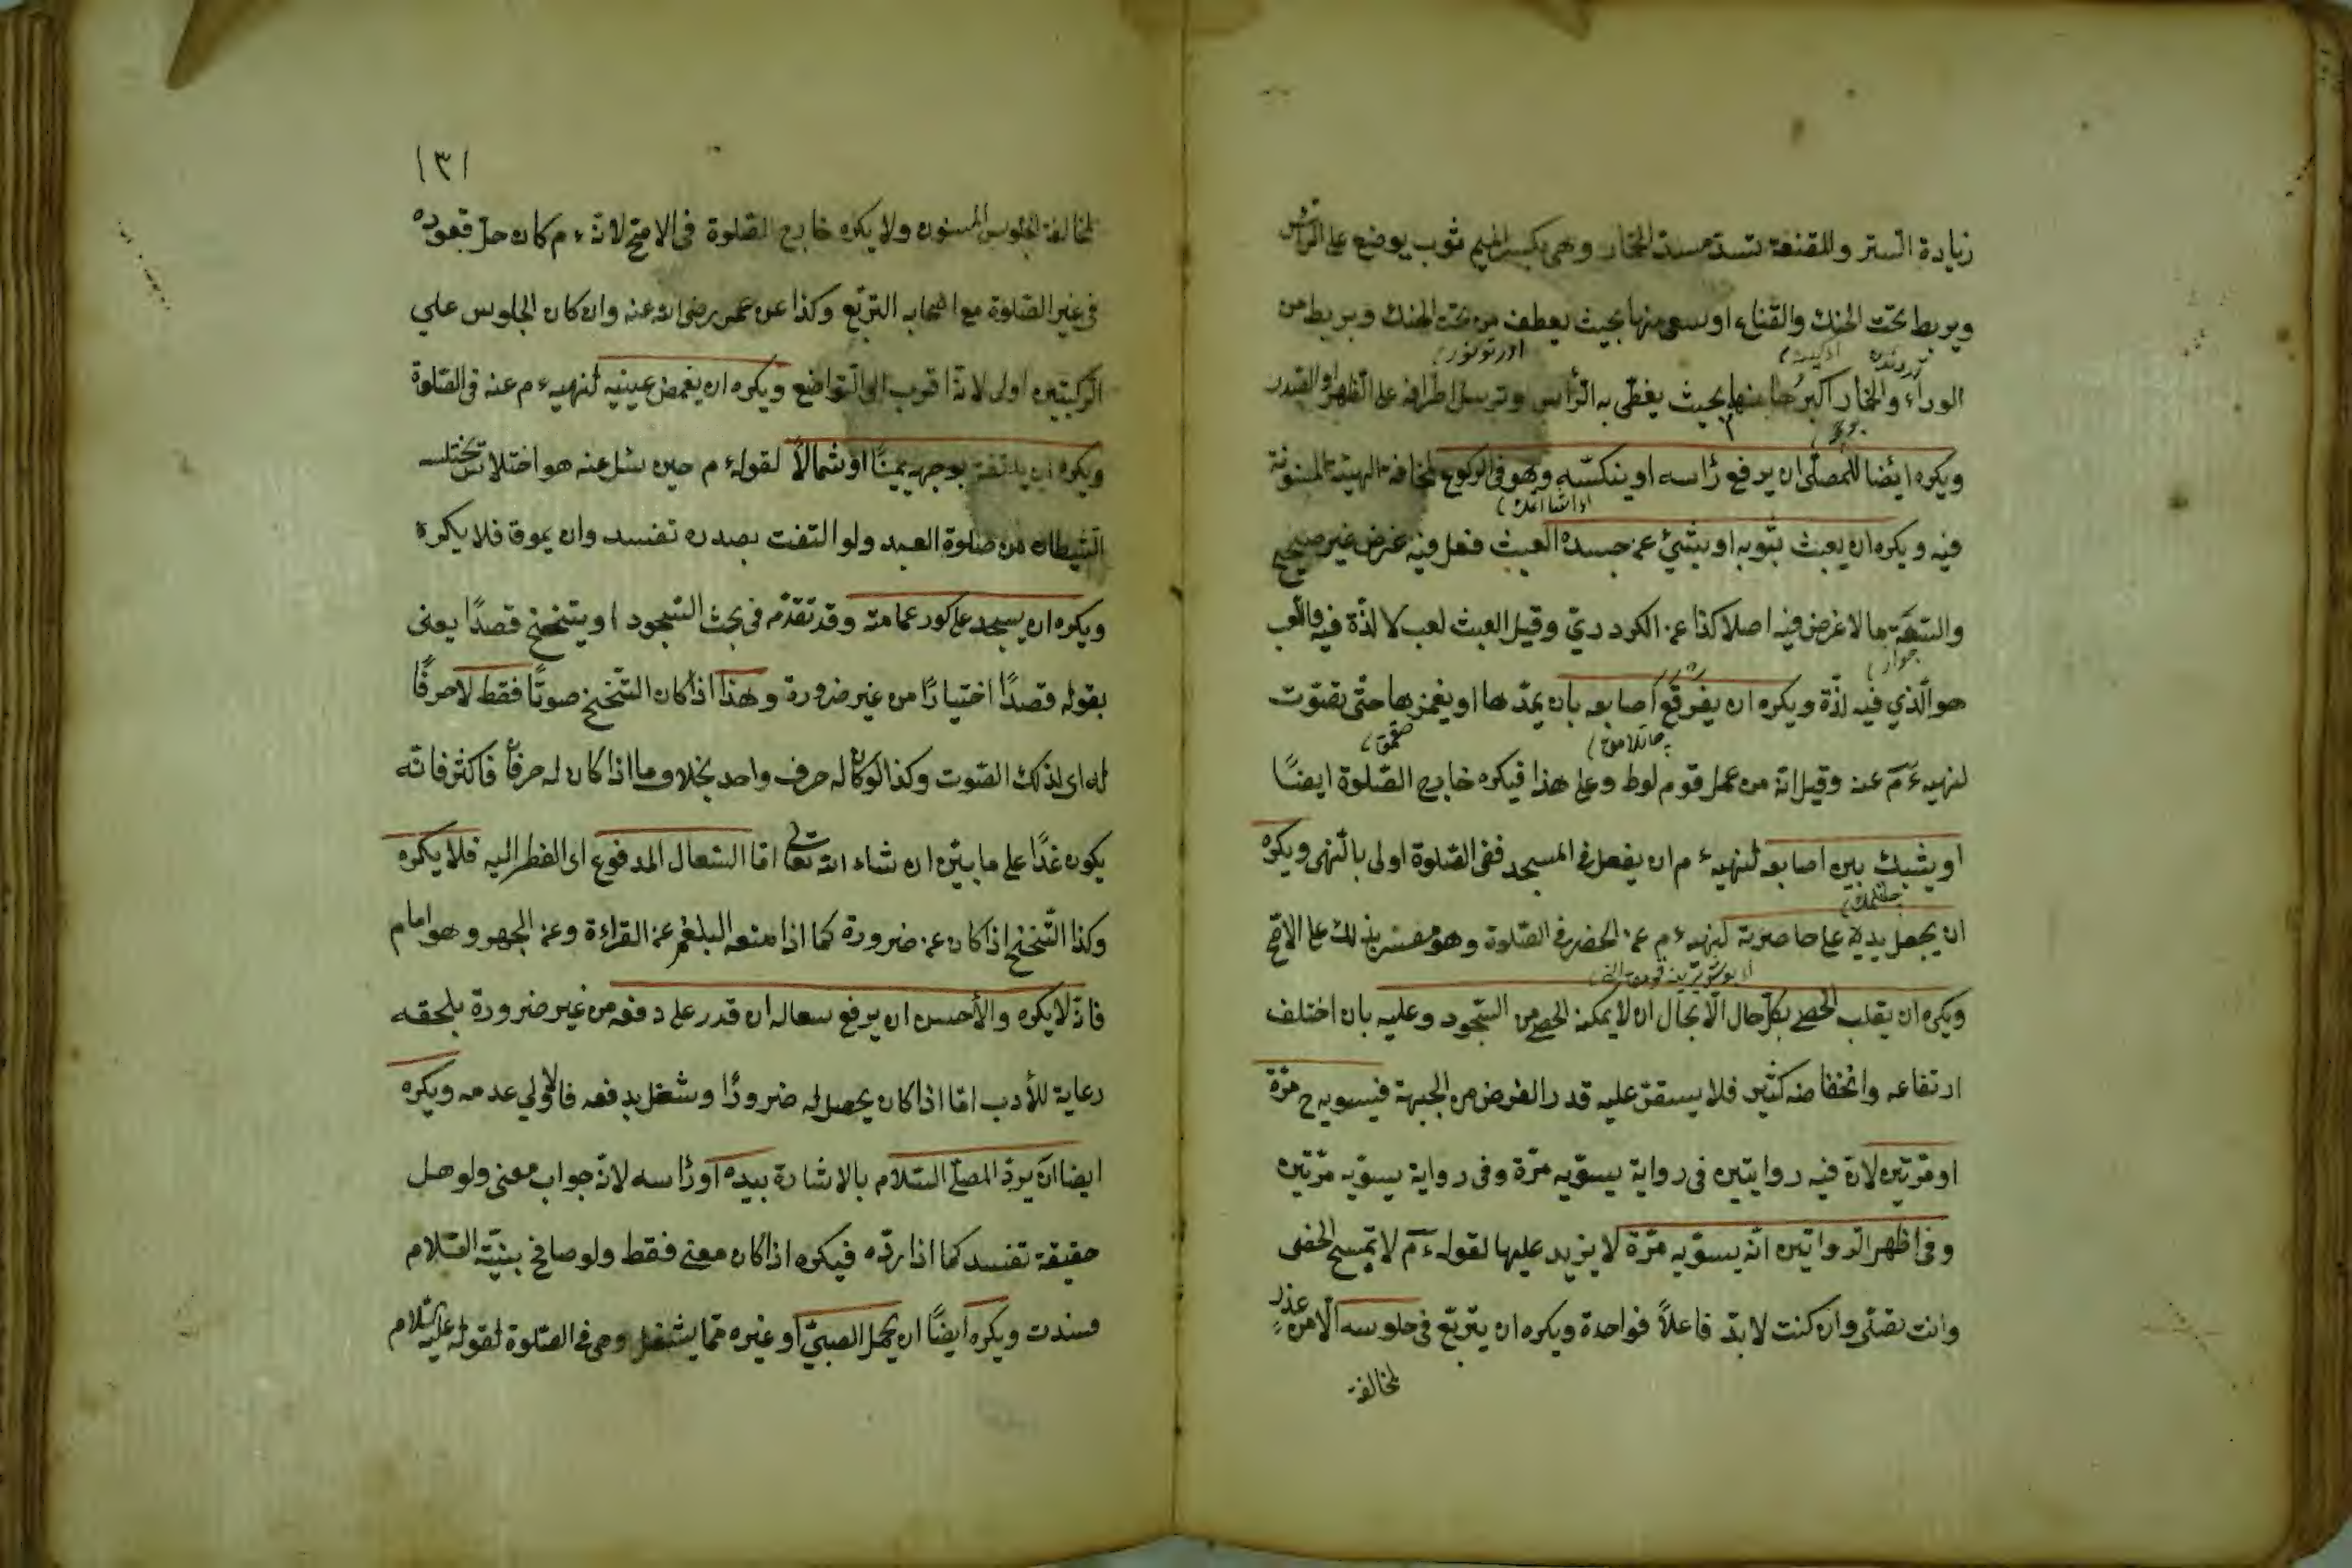 زيادة الستر وللمقنعة تسد مسد الخمار وهى بكسر الميم ثوب يوضع على الرأس
ويربط تحت الحنك والقناع اوسع منها بحيث يعطف من تحت الحنك ويربط من
الوراء والخمار اكبر منها بحيث يغطّى به الرّأس وترسل اطرافه على الظهر او الصدر
ويكره ايضا للمصلّى ان يرفع رأسه او ينكسّه وهو فى الركوع لمخالفة الهيئة المسنونة
فيه ويكره ان يعبث بثوبه او بشئ من جسده العبث فعل فيه غرض غير صحيح
والسفه ما لا غرض فيه اصلا كذا عن الكردرىّ وقيل العبث لعب لا لذّة فيه واللعب
هو الّذي فيه لذّة ويكره ان يفرقع اصابعه بان يمدّها او يغمزها حتّى تصوّت
لنهيه ءم عنه وقيل انّه من عمل قوم لوط وعلى هذا فيكره خارج الصّلوة ايضًا
او يشبك بين اصابعه لنهيه ء م ان يفعل فى المسجد ففى الصّلوة اولى بالنّهى ويكره
ان يجعل يديه على خاصرته لنهيه ء م عن الخصر فى الصّلوة وهو مفسّر بذلك على الاصحّ
ويكره ان يقلب الحصى بكلّ حال الّا بحال ان لا يمكنه الحصى من السّجود وعليه بان اختلف
ارتفاعه وانخفاضه كثير فلا يستقرّ عليه قدر الفرض من الجبهة فيسويه ح مرّة
او مرّتين لانّ فيه روايتين فى رواية يسوّيه مرّة وفى رواية يسوّيه مرّتين
وفى اظهر الرّوايتين انّه يسوّيه مرّة لا يزيد عليها لقوله ءم لا تمسح الحصى
وانت تصلّى وان كنت لا بدّ فاعلاً فواحدة ويكره ان يتربّع فى جلوسه الّا من عذر
لمخالفة
١٣١
لمخالفة الجلوس المسنون ولا يكره خارج الصّلوة فى الاصحّ لانّه ء م كان جلّ قعوده
فى غير الصّلوة مع اصحابه التربّع وكذا عن عمر رضى الله عنه وان كان الجلوس علي
الرّكبتين اولى لانّه اقرب الى التّواضع ويكره ان يغمض عينيه لنهيه ء م عنه فى الصّلوة
ويكره ان يلتفت بوجهه يمينًا او شمالاً لقوله ء م حين سئل عنه هو اختلاس يختلسه
الشّيطان من صلوة العبد ولو التفت بصدره تفسد وان بموق فلا يكره
ويكره ان يسجد على كور عمامته وقد تقدّم فى بحث السّجود او يتنحنح قصدًا يعنى
بقوله قصدًا اختيارًا من غير ضرورة وهذا اذا كان التّنحنح صوتًا فقط لا حرفًا
له اى لذلك الصّوت وكذا لو كان له حرف واحد بخلاف ما اذا كان له حرفان فاكثر فانّه
يكون غدًا على ما يبيّن ان شاء الله تعالى امّا السّعال المدفوع اى الفطر اليه فلا يكره
وكذا التّنحنح اذا كان عن ضرورة كما اذا منعه البلغم عن القراءة وعن الجهر وهو امام
فانّه لا يكره والأحسن ان يرفع سعاله ان قدر على دفعه من غير ضرورة يلحقه
رعاية للأدب امّا اذا كان يحصل له ضررًا وشغل بدفعه فالاولي عدمه ويكره
ايضا ان يردّ المصلّى السّلام بالاشارة بيده او رأسه لانّه جواب معنى ولو حصل
حقيقة تفسد كما اذا ردّه فيكره اذا كان معنى فقط ولو صافح بنيّة السّلام
فسدت ويكره ايضًا ان يحمل الصبىّ او غيره ممّا يشغل وهى فى الصّلوة لقوله عليه السّلام